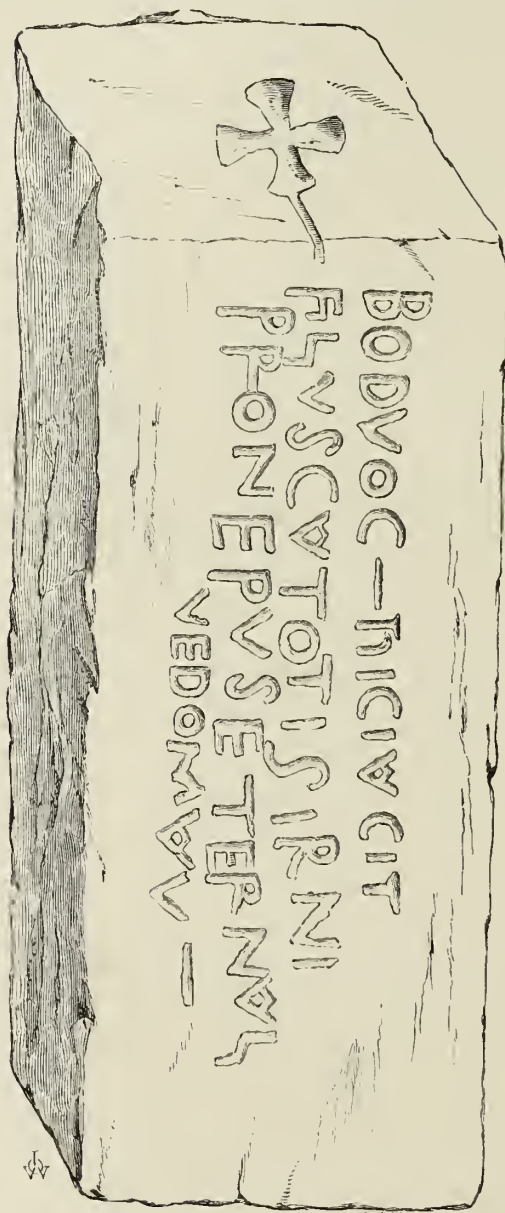 BODVOC–HICIACIT
FLVSCATOTISIRNI
PPONEPVSETERNAL
VEDOMAV–